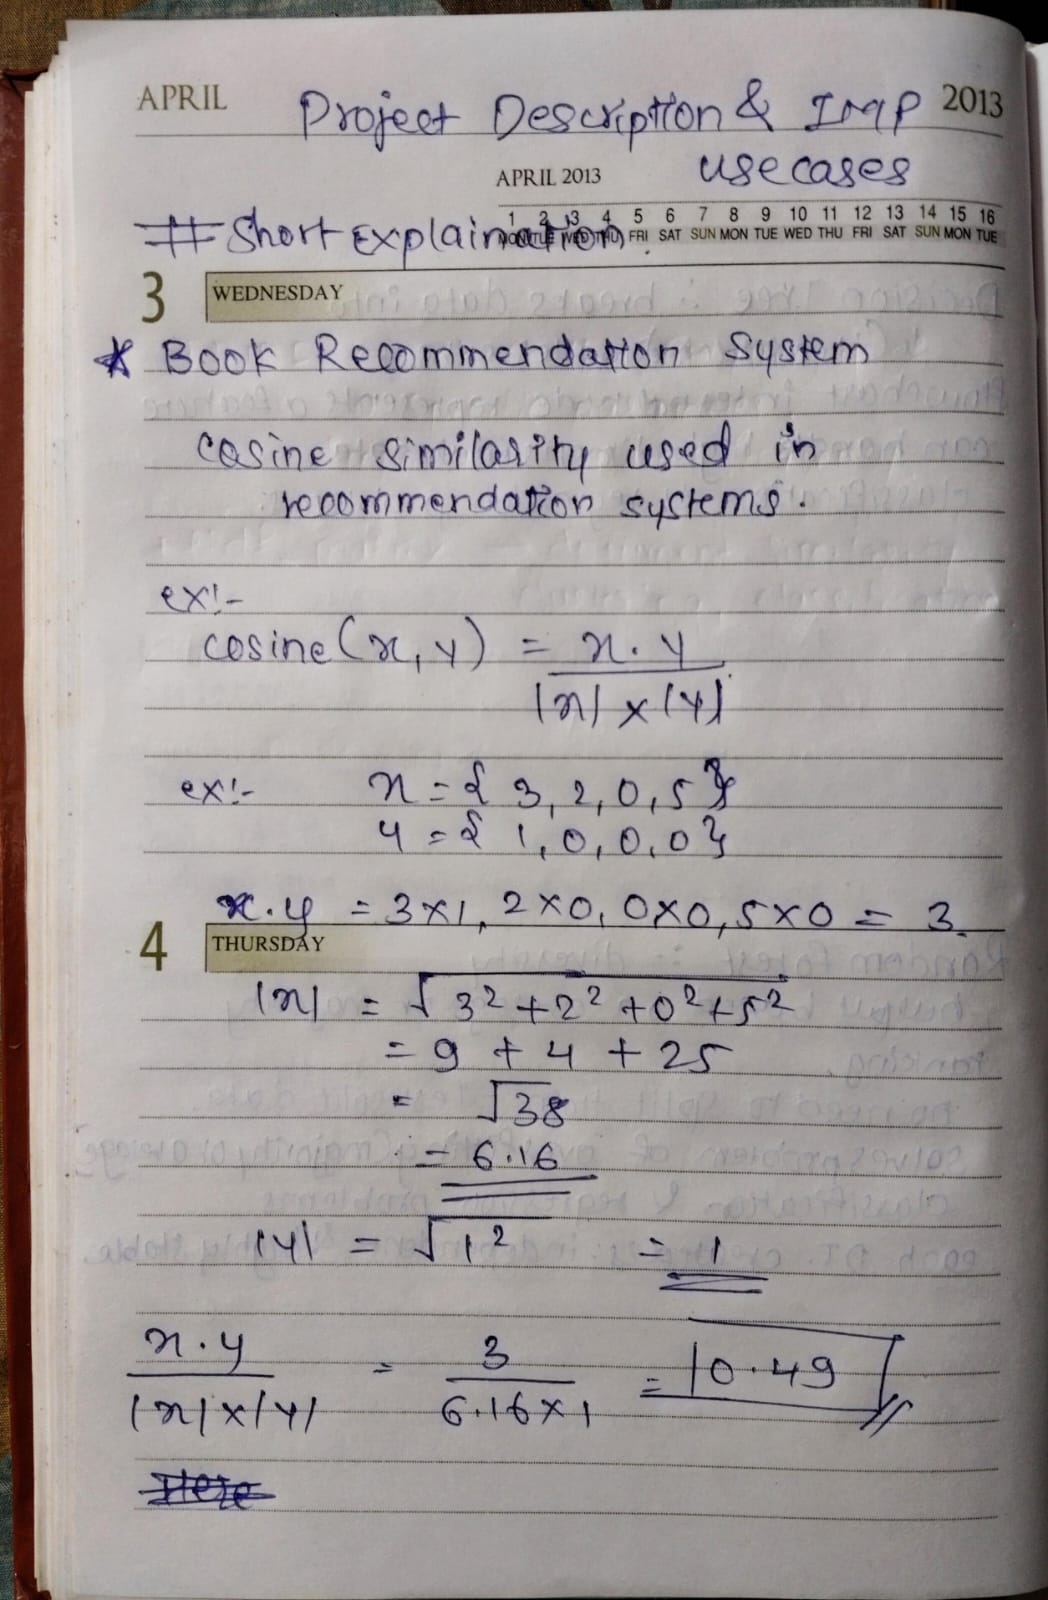 APRIL Project Description & Imp 2013
APRIL 2013 usecases
# Short Explaination
1 2 3 4 5 6 7 8 9 10 11 12 13 14 15 16
MON TUE WED THU FRI SAT SUN MON TUE WED THU FRI SAT SUN MON TUE
3 WEDNESDAY
* Book Recommendation System
cosine similarity used in
recommendation systems.
ex:-
cosine (x, y) = x. y
|x| x |y|
ex:- x = { 3, 2, 0, 5 }
y = { 1, 0, 0, 0 }
x. y = 3x1, 2x0, 0x0, 5x0 = 3.
4 THURSDAY
|x| = √3² + 2² + 0² + 5²
= 9 + 4 + 25
= √38
= 6.16
|y| = √1² = 1
x. y = 3 = 0.49
|x| x |y| 6.16 x 1